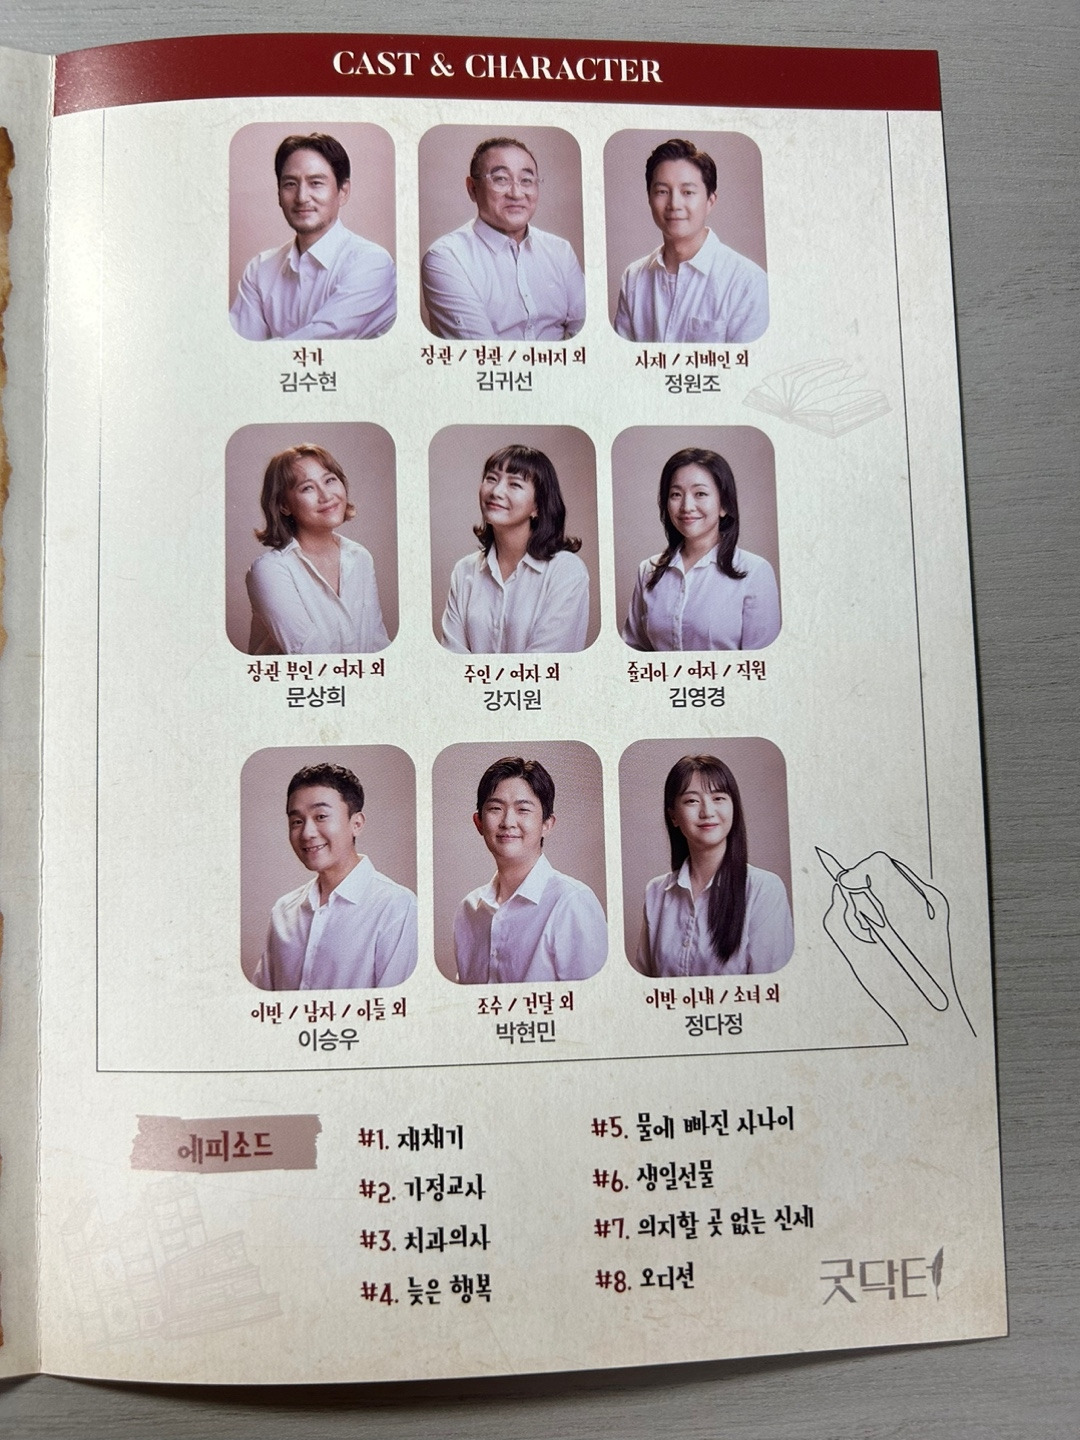 CAST & CHARACTER
작가
김수현
장관 / 경관 / 아버지 외
김귀선
사제 / 지배인 외
정원조
장관 부인 / 여자 외
문상희
주인 / 여자 외
강지원
줄리아 / 여자 / 직원
김영경
이반 / 남자 / 아들 외
이승우
조수 / 건달 외
박현민
이반 아내 / 소녀 외
정다정
에피소드
#1. 재채기
#2. 가정교사
#3. 치과의사
#4. 늦은 행복
#5. 물에 빠진 사나이
#6. 생일선물
#7. 의지할 곳 없는 신세
#8. 오디션
굿닥터